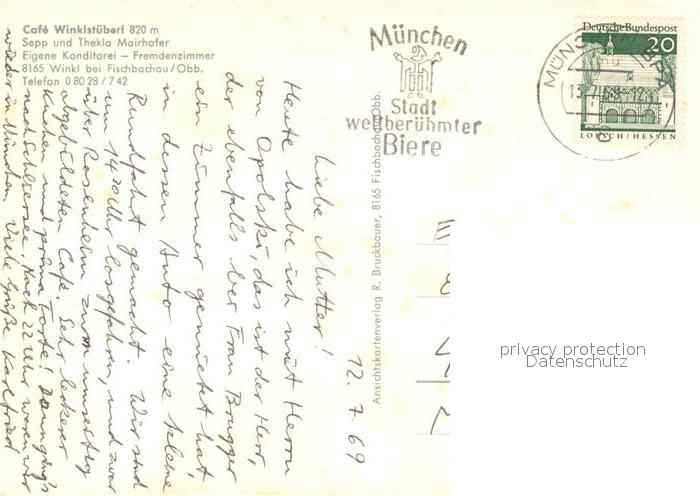 Café Winklstüberl 820 m
Sepp und Thekla Mairhofer
Eigene Konditorei – Fremdenzimmer
8165 Winkl bei Fischbachau/Obb.
Telefon 0 80 28 / 7 42
München
Stadt
weltberühmter
Biere
Deutsche Bundespost
20
LORSCH / HESSEN
13.7.69
Ansichtskartenverlag R. Bruckbauer, 8165 Fischbachau/Obb.
12.7.69
Liebe Mutter!
Heute habe ich mit Herrn
von Opolski, das ist der Herr,
der ebenfalls bei Frau Brugger
ein Zimmer gemietet hat,
in dessen Auto eine kleine
Rundfahrt gemacht. Wir sind
um 14.30 Uhr losgefahren, und zwar
über Rosenheim zum umseitig
abgebildeten Café. Sehr leckerer
Kuchen und prima Torte! Dann ging's
nach Schliersee. Nach 22 Uhr waren wir
wieder in München. Viele Grüße Karlfried
privacy protection
Datenschutz